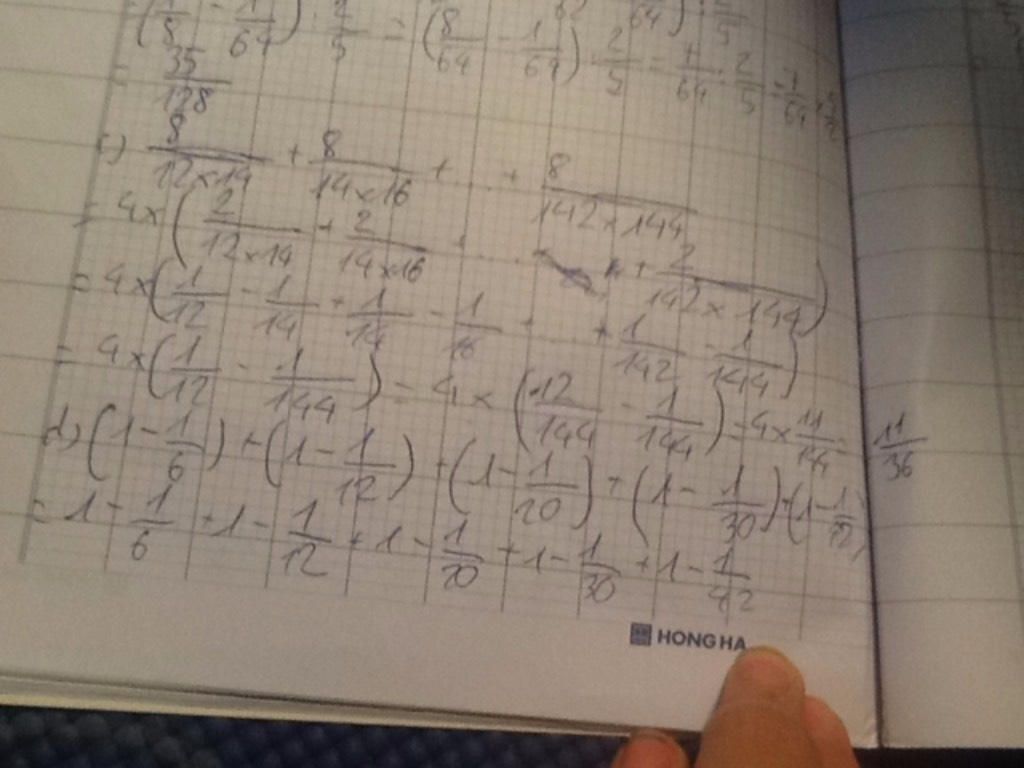 (1/8 - 1/64) · 2/5 = (8/64 - 1/64) · 2/5 = 7/64 · 2/5 = 7/64 ×
= 35/128
c) 8/12×14 + 8/14×16 + ... + 8/142×144
= 4×(2/12×14 + 2/14×16 + ... + 2/142×144)
= 4×(1/12 - 1/14 + 1/14 - 1/16 + ... + 1/142 - 1/144)
= 4×(1/12 - 1/144) = 4×(12/144 - 1/144) = 4×11/144 = 11/36
d) (1-1/6) + (1-1/12) + (1-1/20) + (1-1/30) + (1-1/42)
= 1-1/6 + 1-1/12 + 1-1/20 + 1-1/30 + 1-1/42
HONG HA